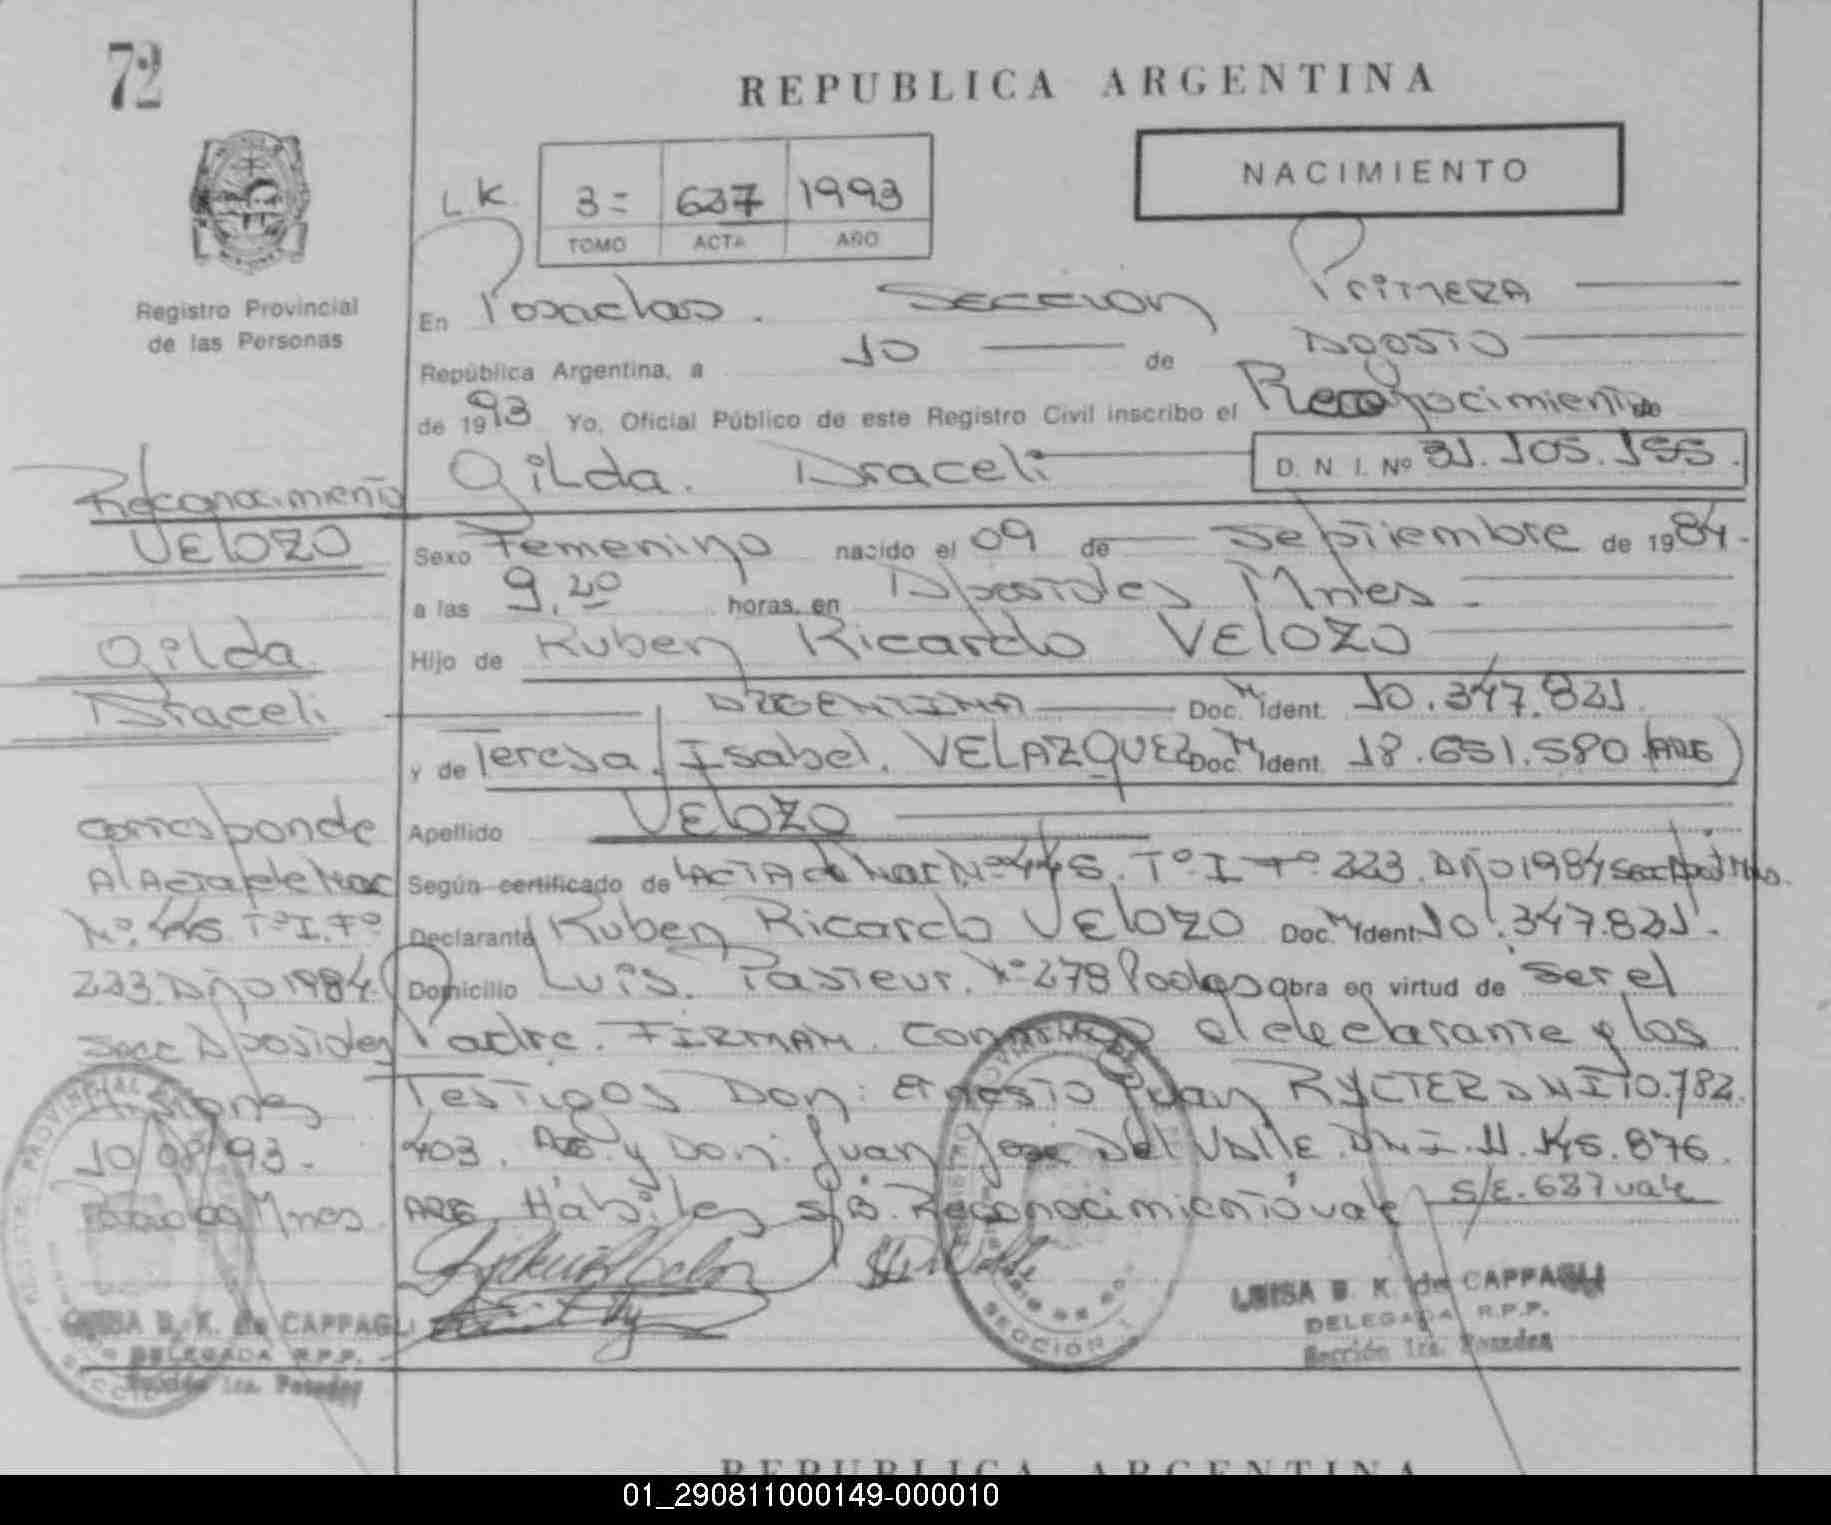 72
REPUBLICA ARGENTINA
NACIMIENTO
L.K.
3= 637 1993
TOMO ACTA AÑO
Registro Provincial
de las Personas
En Posadas. Seccion Primera
República Argentina, a 10 de Agosto
de 1993 Yo, Oficial Público de este Registro Civil inscribo el Reconocimiento de
Gilda. Araceli D. N. I. Nº 31.105.155.
Reconocimiento
VELOZO
Gilda
Araceli
Sexo Femenino nacido el 09 de Septiembre de 1984-
a las 9.20 horas, en Apostoles Mnes -
Hijo de Ruben Ricardo VELOZO
ARGENTINA Doc. M Ident. 10.347.831
y de Teresa Isabel. VELAZQUEZ Doc. M Ident. 18.651.580 (ARG)
Apellido VELOZO
Según certificado de ACTA de Nac Nº 445. Tº I Fº 223. Año 1984 Secc
Declarante Ruben Ricardo VELOZO Doc. M Ident. 10.347.831.
Domicilio Luis. Pasteur. Nº 278 Obra en virtud de Ser el
Padre. FIRMAN. Conmigo el declarante y los
Testigos Don: Ernesto Juan RYCTER DNI 10.782.
403. ARG. y Don: Juan Jose Del Valle. D.N.I. 11.145.876.
ARG Hábiles s/B. Reconocimiento vale S/E. 637 vale
corresponde
Al Acta de Nac
Nº. 445. Tº I. Fº
223. Año 1984.
Secc Apostoles
Misiones
10/08/93.
Posadas Mnes.
REGISTRO PROVINCIAL
SECCION 1
LUISA B. K. de CAPPAGLI
DELEGADA R.P.P.
Sección 1ra. Posadas
LUISA B. K. de CAPPAGLI
DELEGADA R.P.P.
Sección 1ra. Posadas
REPUBLICA ARGENTINA
01_290811000149-000010